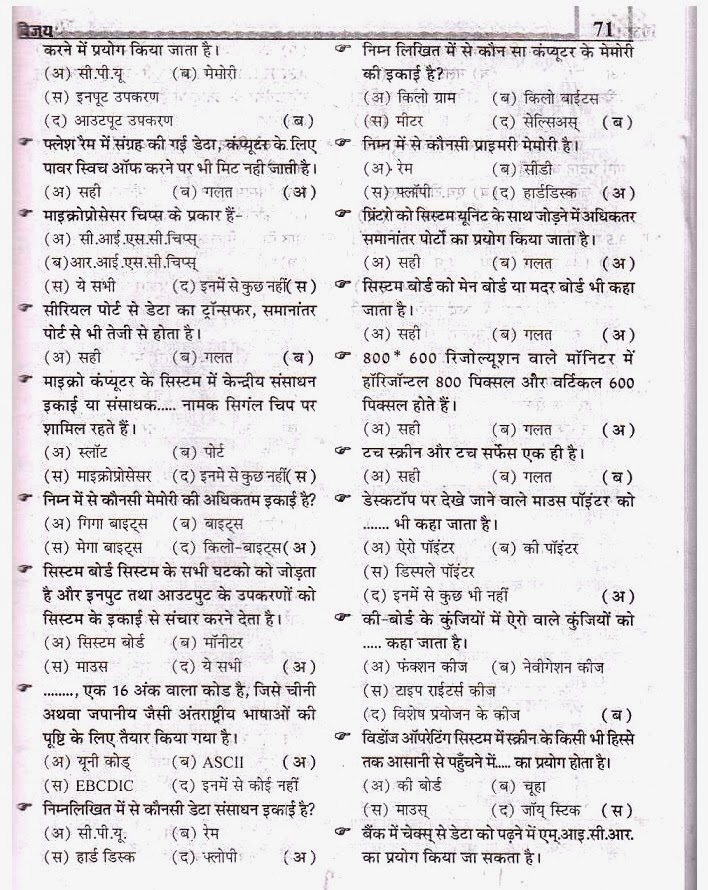 विजय
71
करने में प्रयोग किया जाता है।
(अ) सी.पी.यू (ब) मेमोरी
(स) इनपूट उपकरण
(द) आउटपूट उपकरण (ब)
फ्लेश रैम में संग्रह की गई डेटा, कंप्यूटर के लिए
पावर स्विच ऑफ करने पर भी मिट नही जाती है।
(अ) सही (ब) गलत (अ)
माइक्रोप्रोसेसर चिप्स के प्रकार हैं-
(अ) सी.आई.एस.सी.चिप्स्
(ब)आर.आई.एस.सी.चिप्स्
(स) ये सभी (द) इनमें से कुछ नहीं(स)
सीरियल पोर्ट से डेटा का ट्रॉन्सफर, समानांतर
पोर्ट से भी तेजी से होता है।
(अ) सही (ब) गलत (ब)
माइक्रो कंप्यूटर के सिस्टम में केन्द्रीय संसाधन
इकाई या संसाधक..... नामक सिगंल चिप पर
शामिल रहते हैं।
(अ) स्लॉट (ब) पोर्ट
(स) माइक्रोप्रोसेसर (द) इनमे से कुछ नहीं(स)
निम्न में से कौनसी मेमोरी की अधिकतम इकाई है?
(अ) गिगा बाइट्स (ब) बाइट्स
(स) मेगा बाइट्स (द) किलो-बाइट्स(अ)
सिस्टम बोर्ड सिस्टम के सभी घटको को जोड़ता
है और इनपुट तथा आउटपुट के उपकरणों को
सिस्टम के इकाई से संचार करने देता है।
(अ) सिस्टम बोर्ड (ब) मॉनीटर
(स) माउस (द) ये सभी (अ)
........, एक 16 अंक वाला कोड है, जिसे चीनी
अथवा जपानीय जैसी अंतराष्ट्रीय भाषाओं की
पूष्टि के लिए तैयार किया गया है।
(अ) यूनी कोड् (ब) ASCII (अ)
(स) EBCDIC (द) इनमें से कोई नहीं
निम्नलिखित में से कौनसी डेटा संसाधन इकाई है?
(अ) सी.पी.यू. (ब) रेम
(स) हार्ड डिस्क (द) फ्लोपी (अ)
निम्न लिखित में से कौन सा कंप्यूटर के मेमोरी
की इकाई है?
(अ) किलो ग्राम (ब) किलो बाईटस
(स) मीटर (द) सेल्सिअस् (ब)
निम्न में से कौनसी प्राइमरी मेमोरी है।
(अ) रेम (ब) सीडी
(स) फ्लॉपी (द) हार्डडिस्क (अ)
प्रिंटरो को सिस्टम यूनिट के साथ जोड़ने में अधिकतर
समानांतर पोर्टो का प्रयोग किया जाता है।
(अ) सही (ब) गलत (अ)
सिस्टम बोर्ड को मेन बोर्ड या मदर बोर्ड भी कहा
जाता है।
(अ) सही (ब) गलत (अ)
800* 600 रिजोल्यूशन वाले मॉनिटर में
हॉरिजॉन्टल 800 पिक्सल और वर्टिकल 600
पिक्सल होते हैं।
(अ) सही (ब) गलत (अ)
टच स्क्रीन और टच सर्फेस एक ही है।
(अ) सही (ब) गलत (ब)
डेस्कटॉप पर देखे जाने वाले माउस पॉइंटर को
....... भी कहा जाता है।
(अ) ऐरो पॉइंटर (ब) की पॉइंटर
(स) डिस्पले पॉइंटर
(द) इनमें से कुछ भी नहीं (अ)
की-बोर्ड के कुंजियों में ऐरो वाले कुंजियों को
..... कहा जाता है।
(अ) फंक्शन कीज (ब) नेवीगेशन कीज
(स) टाइप राईटर्स कीज
(द) विशेष प्रयोजन के कीज (ब)
विडोंज ऑपरेटिंग सिस्टम में स्क्रीन के किसी भी हिस्से
तक आसानी से पहुँचने में..... का प्रयोग होता है।
(अ) की बोर्ड (ब) चूहा
(स) माउस् (द) जॉय् स्टिक (स)
बैंक में चेक्स् से डेटा को पढ़ने में एम्.आइ.सी.आर.
का प्रयोग किया जा सकता है।